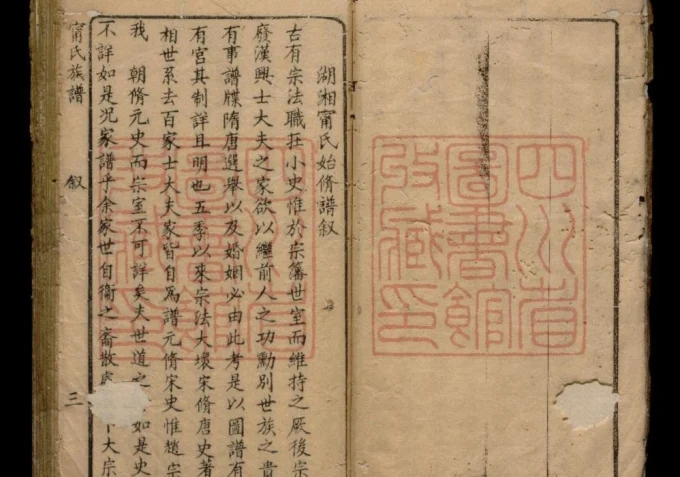 四川省
圖書館
收藏印
湖湘甯氏始脩譜叙
古有宗法職在小史惟於宗籓世室而維持之厥後宗
廢漢興士大夫之家欲以繼前人之功勳別世族之貴
有事譜牒隋唐選舉以及婚姻必由此考是以圖譜有
有官其制詳且明也五季以來宗法大壞宋脩唐史著
相世系去百家士大夫家皆自為譜元脩宋史惟趙宗
我 朝脩元史而宗室不可詳矣夫世道之 如是史
不詳如是况家譜乎余家世自衛之裔散處 大宗
甯氏族譜 叙 三